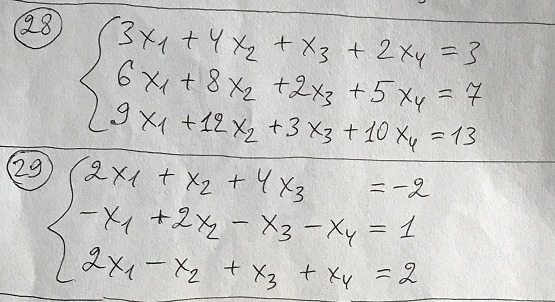 28
3x₁ + 4x₂ + x₃ + 2x₄ = 3
6x₁ + 8x₂ + 2x₃ + 5x₄ = 7
9x₁ + 12x₂ + 3x₃ + 10x₄ = 13
29
2x₁ + x₂ + 4x₃ = -2
-x₁ + 2x₂ - x₃ - x₄ = 1
2x₁ - x₂ + x₃ + x₄ = 2